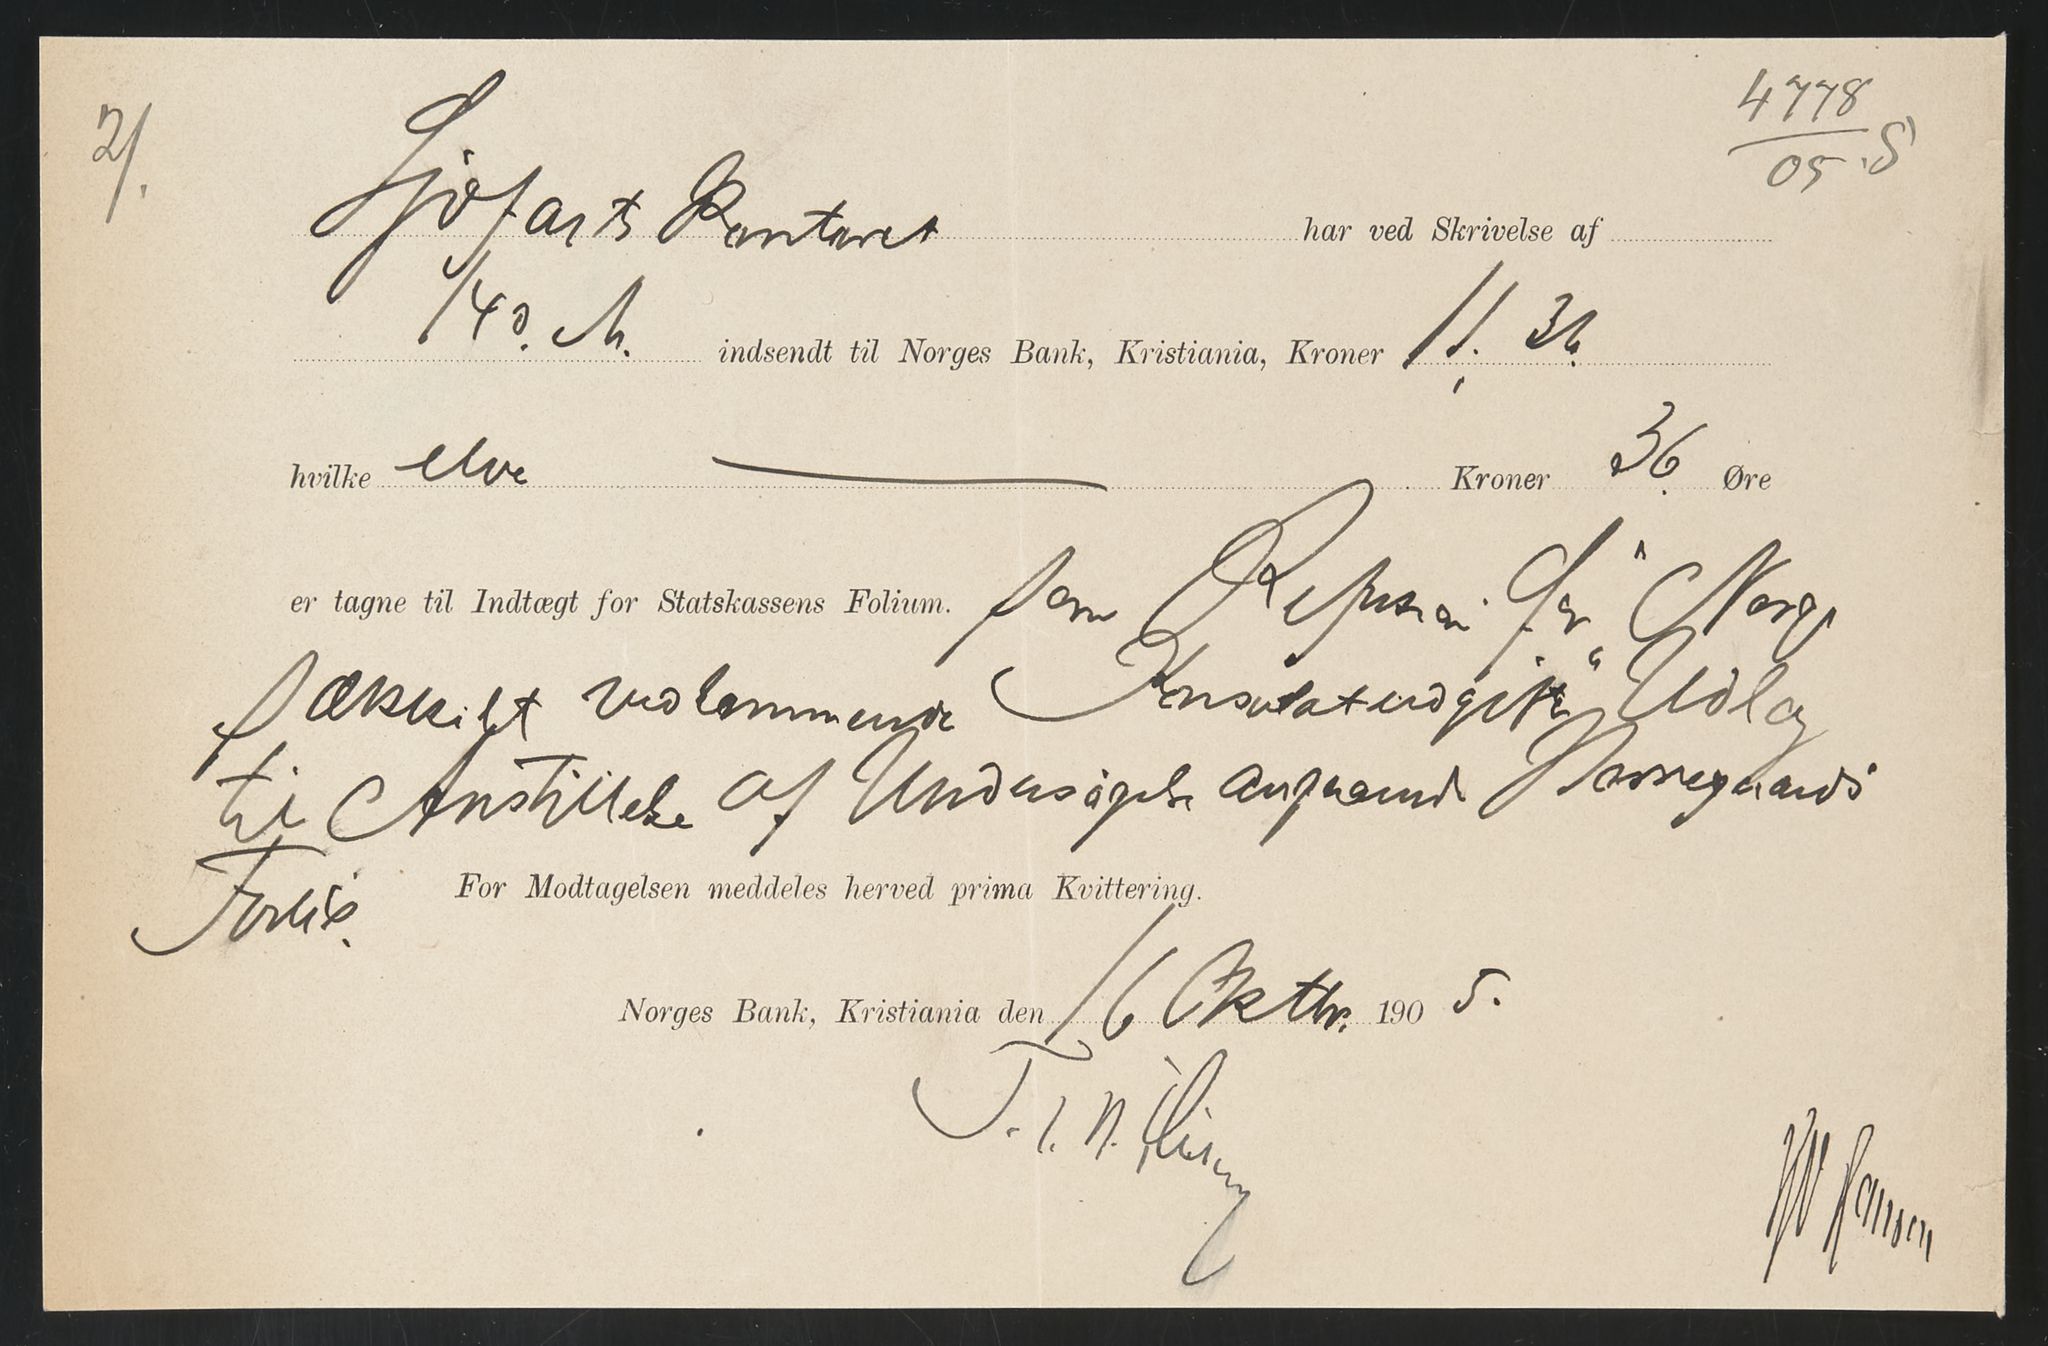 2/.
4778
05 .S
Sjöfarts Kontoret har ved Skrivelse af
14d. M. indsendt til Norges Bank, Kristiania, Kroner 11. 36.
hvilke elve Kroner 36. Øre
er tagne til Indtægt for Statskassens Folium. som Refusion for "Norge
særskilt vedkommende Konsulatudgifter" Udlæg
til Anstillelse af Undersøgelse angaaende Norregaards
Forlis. For Modtagelsen meddeles herved prima Kvittering.
Norges Bank, Kristiania den 16 Oktbr. 1905.
T. N.
Hansen